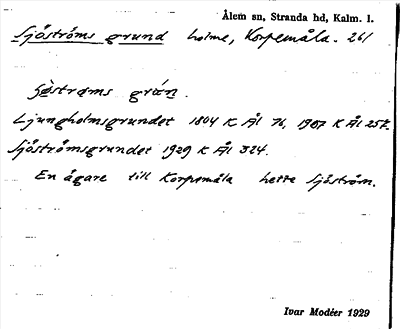 Ålem sn, Stranda hd, Kalm. l.
Sjöströms grund holme, Korpemåla. 261
sjöstrøms grún.
Ljungholmsgrundet 1804 K Ål 76, 1907 K Ål 257.
Sjöströmsgrundet 1929 K Ål 324.
En ägare till Korpemåla hette Sjöström.
Ivar Modéer 1929